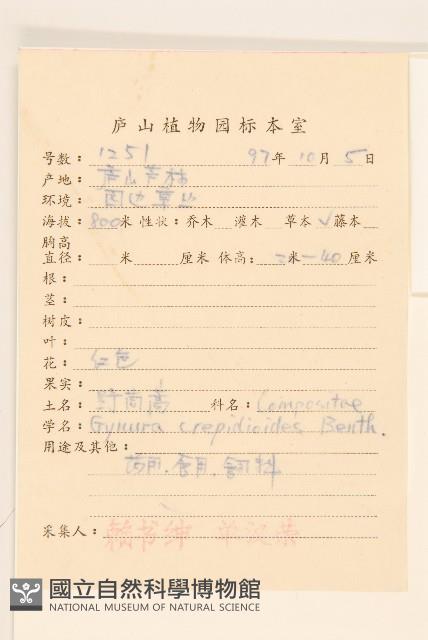 庐山植物园标本室
号数: 1251 97年10月5日
产地: 庐山芦林
环境: 周边草丛
海拔: 800米 性状: 乔木 灌木 草本√藤本
胸高
直径: 米 厘米 体高: 米—40厘米
根:
茎:
树皮:
叶:
花: 红色
果实:
土名: 野茼蒿 科名: Compositae
学名: Gynura crepidioides Benth.
用途及其他:
药用.食用.饲料
采集人: 赖书绅 单汉荣
國立自然科學博物館
NATIONAL MUSEUM OF NATURAL SCIENCE